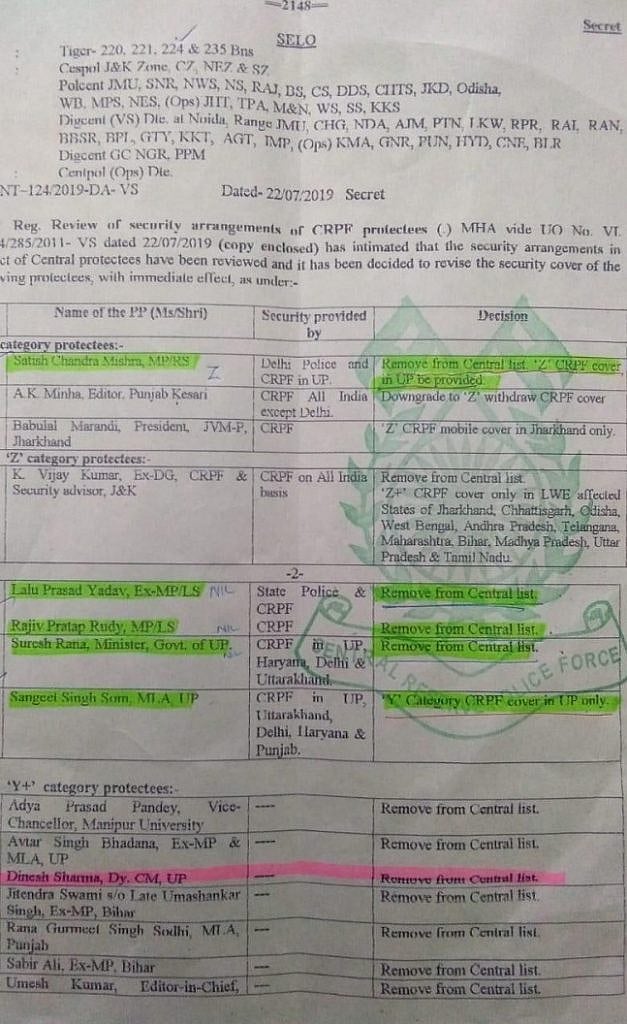 =2148=
Secret
SELO
: Tiger- 220, 221, 224 & 235 Bns
: Cespol J&K Zone, CZ, NEZ & SZ
Polcent JMU, SNR, NWS, NS, RAJ, BS, CS, DDS, CHTS, JKD, Odisha,
WB, MPS, NES, (Ops) JHT, TPA, M&N, WS, SS, KKS
Digcent (VS) Dte. at Noida, Range JMU, CHG, NDA, AJM, PTN, LKW, RPR, RAI, RAN,
BBSR, BPL, GTY, KKT, AGT, IMP, (Ops) KMA, GNR, PUN, HYD, CNE, BLR
Digcent GC NGR, PPM
: Centpol (Ops) Dte.
NT-124/2019-DA- VS Dated- 22/07/2019 Secret
Reg. Review of security arrangements of CRPF protectees (.) MHA vide UO No. VI.
4/285/2011- VS dated 22/07/2019 (copy enclosed) has intimated that the security arrangements in
ct of Central protectees have been reviewed and it has been decided to revise the security cover of the
ving protectees, with immediate effect, as under:-
Name of the PP (Ms/Shri) Security provided by Decision
category protectees:-
Satish Chandra Mishra, MP/RS Z Delhi Police and CRPF in UP. Remove from Central list. 'Z' CRPF cover in UP be provided.
A.K. Minha, Editor, Punjab Kesari CRPF All India except Delhi. Downgrade to 'Z' withdraw CRPF cover
Babulal Marandi, President, JVM-P, Jharkhand CRPF 'Z' CRPF mobile cover in Jharkhand only.
'Z' category protectees:-
K. Vijay Kumar, Ex-DG, CRPF & Security advisor, J&K CRPF on All India basis Remove from Central list.
'Z+' CRPF cover only in LWE affected
States of Jharkhand, Chhattisgarh, Odisha,
West Bengal, Andhra Pradesh, Telangana,
Maharashtra, Bihar, Madhya Pradesh, Uttar
Pradesh & Tamil Nadu.
-2-
Lalu Prasad Yadav, Ex-MP/LS NIL State Police & CRPF Remove from Central list.
Rajiv Pratap Rudy, MP/LS NIL CRPF Remove from Central list.
Suresh Rana, Minister, Govt. of UP. NIL CRPF in UP, Haryana, Delhi & Uttarakhand. Remove from Central list.
Sangeel Singh Som, MLA, UP CRPF in UP, Uttarakhand, Delhi, Haryana & Punjab. 'Y' Category CRPF cover in UP only.
CENTRAL RESERVE POLICE FORCE
'Y+' category protectees:-
Adya Prasad Pandey, Vice-Chancellor, Manipur University ---- Remove from Central list.
Avtar Singh Bhadana, Ex-MP & MLA, UP ---- Remove from Central list.
Dinesh Sharma, Dy. CM, UP ---- Remove from Central list.
Jitendra Swami s/o Late Umashankar Singh, Ex-MP, Bihar ---- Remove from Central list.
Rana Gurmeet Singh Sodhi, MLA, Punjab ---- Remove from Central list.
Sabir Ali, Ex-MP, Bihar ---- Remove from Central list.
Umesh Kumar, Editor-in-Chief, ---- Remove from Central list.